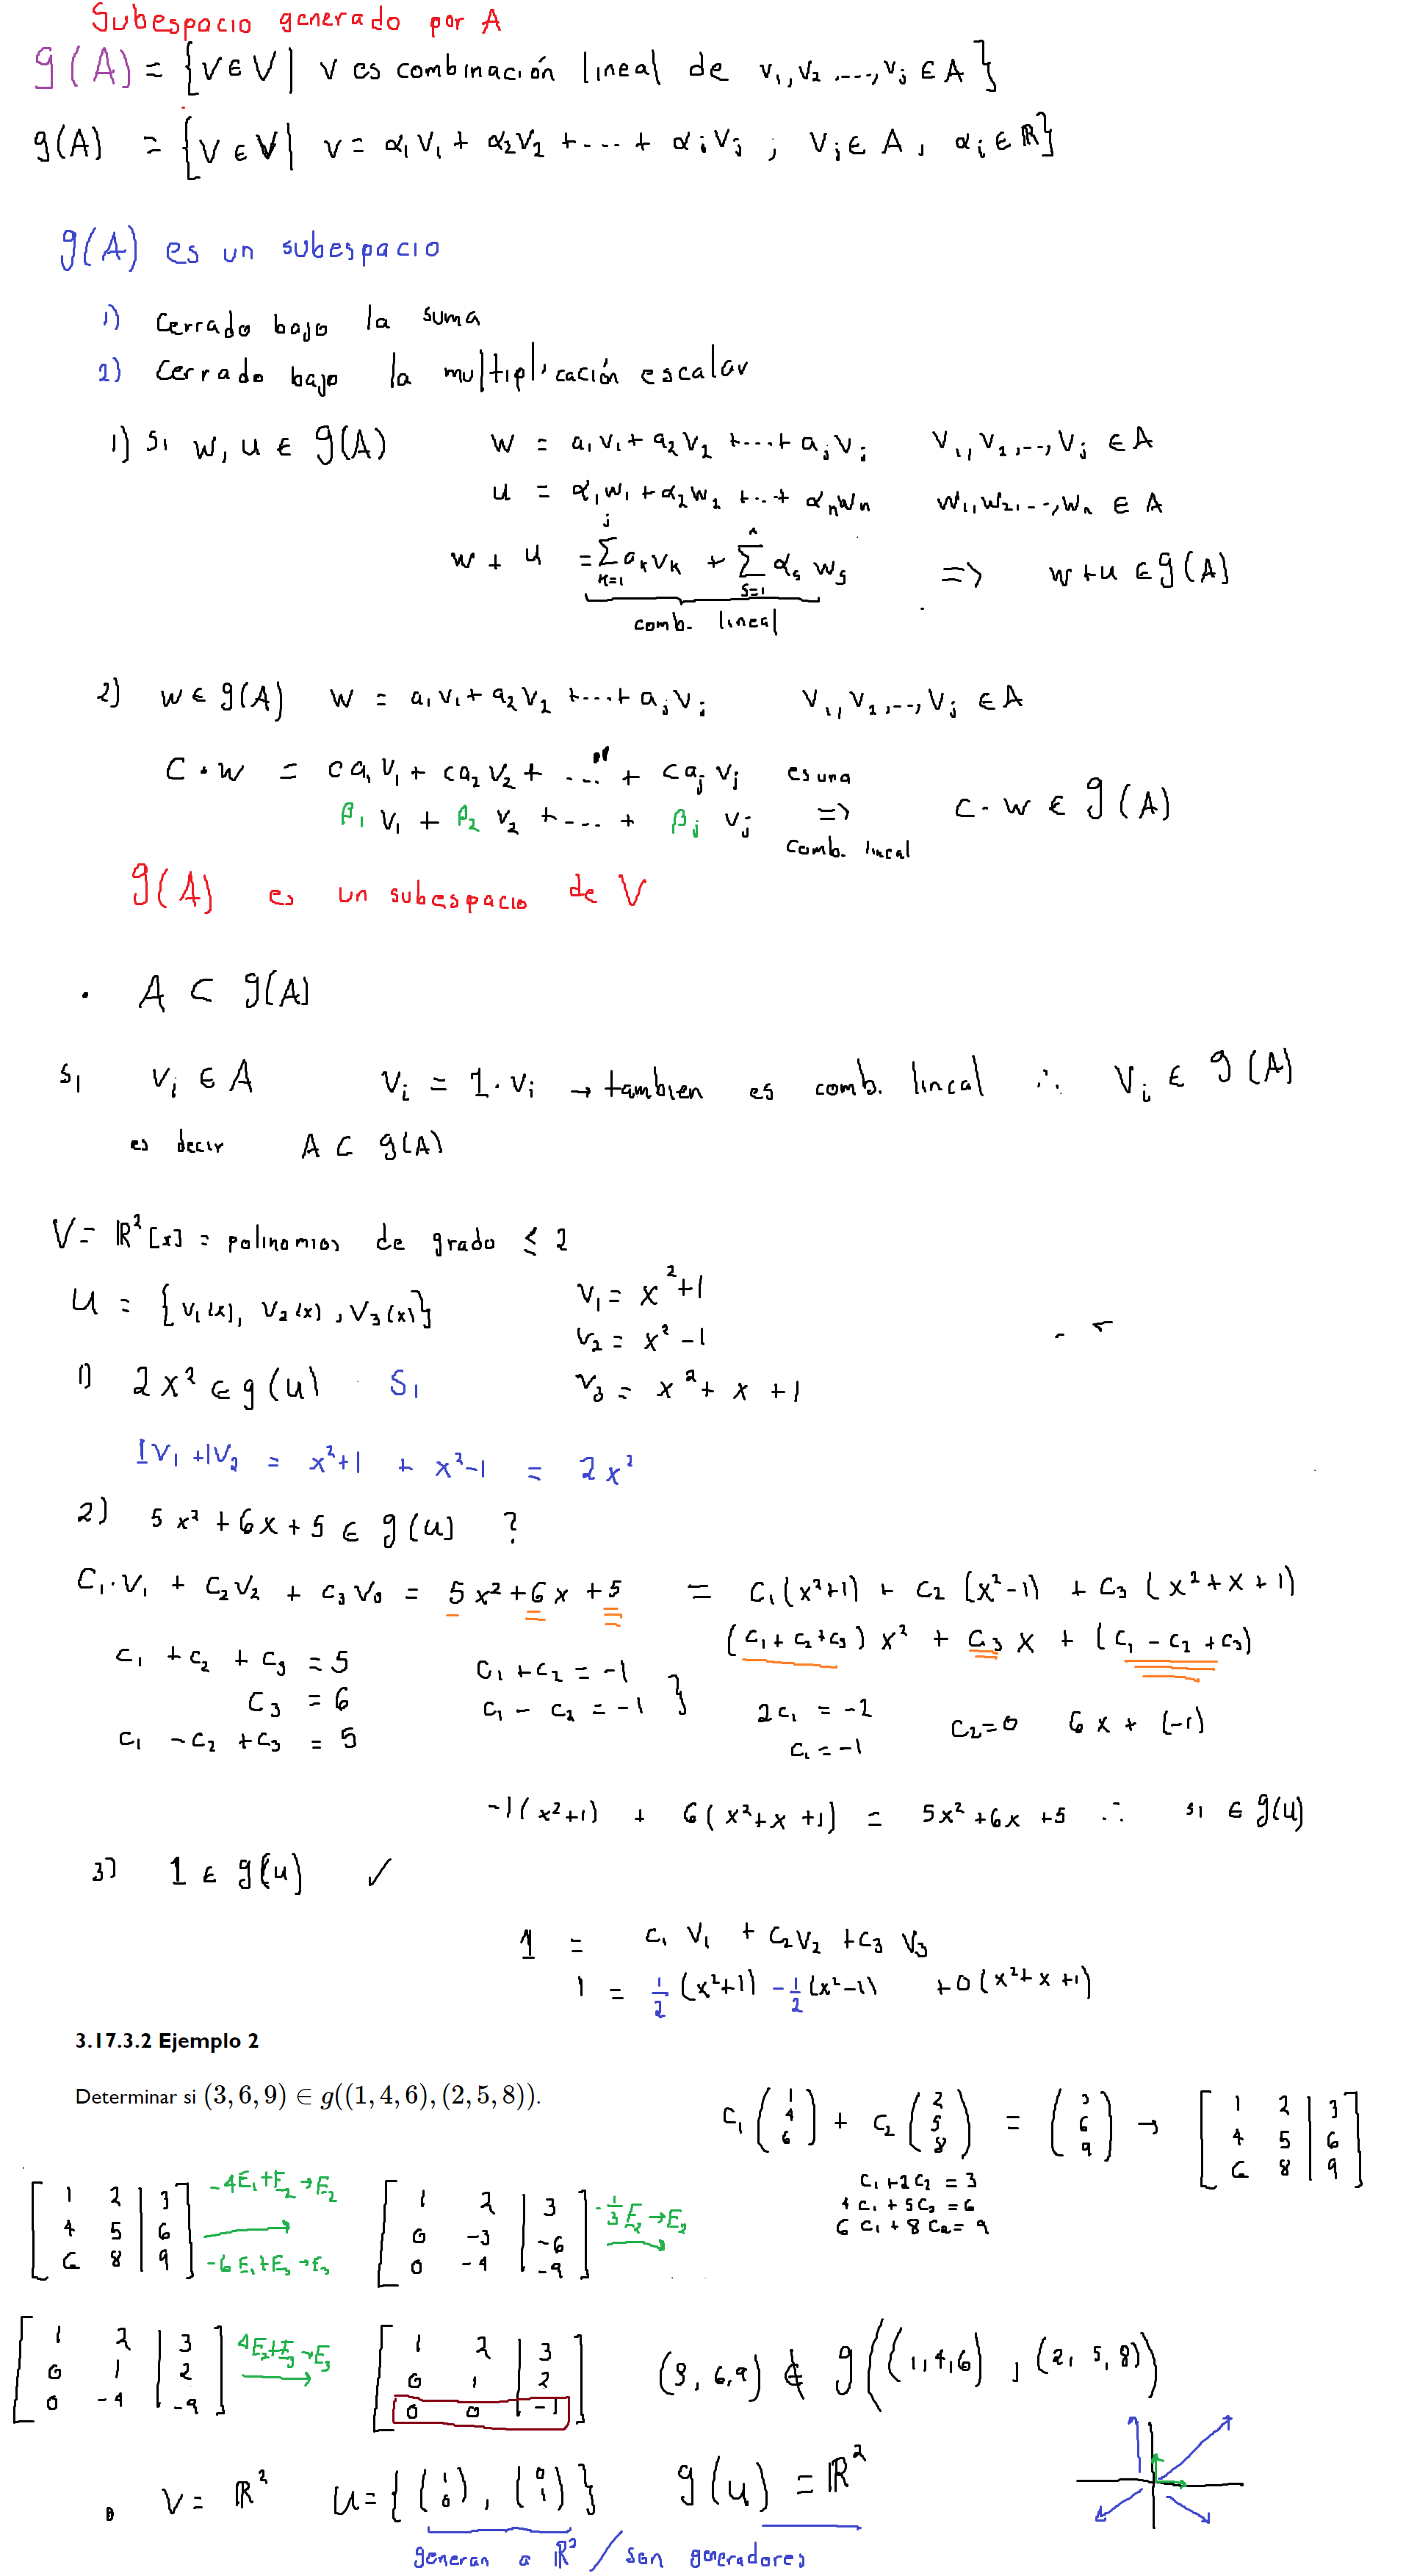 Subespacio generado por A
g(A) = {v∈V| v es combinación lineal de v₁,v₂,....,vⱼ ∈ A}
g(A) = {v∈V| v= α₁v₁ + α₂v₂ +---+ αⱼvⱼ ; vⱼ∈ A, αᵢ∈ℝ}
g(A) es un subespacio
1) Cerrado bajo la suma
2) Cerrado bajo la multiplicación escalar
1) Si w, u ∈ g(A) w = a₁v₁+ a₂v₂ +---+ aⱼvⱼ v₁,v₂,--,vⱼ ∈ A
u = α₁w₁ + α₂w₂ +--+ αₙwₙ w₁,w₂,--,wₙ ∈ A
w + u = ∑ⱼₖ₌₁ aₖvₖ + ∑ⁿₛ₌₁ αₛ wₛ => w+u ∈ g(A)
comb. lineal
2) w∈ g(A) w = a₁v₁+ a₂v₂ +---+ aⱼvⱼ v₁,v₂,--,vⱼ ∈ A
C·w = ca₁v₁ + ca₂v₂ + --- + caⱼvⱼ es una
β₁ v₁ + β₂ v₂ +--- + βⱼ vⱼ => c·w ∈ g(A)
comb. lineal
g(A) es un subespacio de V
· A ⊂ g(A)
Si vᵢ ∈ A vᵢ = 1·vᵢ → tambien es comb. lineal ∴ vᵢ ∈ g(A)
es decir A ⊂ g(A)
V= ℝ²[x] = polinomios de grado ≤ 2
U = {v₁(x), v₂(x), v₃(x)} v₁ = x²+1
v₂ = x² -1
1) 2x² ∈ g(u) Si v₃ = x² + x +1
1v₁ +1v₂ = x²+1 + x²-1 = 2x²
2) 5x² +6x +5 ∈ g(u) ?
C₁·v₁ + C₂v₂ + C₃v₀ = 5x²+6x+5 = C₁(x²+1) + C₂(x²-1) + C₃(x²+x+1)
(C₁+C₂+C₃)x² + C₃x + (C₁ - C₂ + C₃)
C₁ +C₂ + C₃ = 5 C₁ +C₂ = -1
C₃ = 6 C₁ - C₂ = -1 } 2C₁ = -2 C₂=0 6x + (-1)
C₁ -C₂ +C₃ = 5 C₁ = -1
-1(x²+1) + 6(x²+x+1) = 5x²+6x+5 ∴ si ∈ g(u)
3) 1 ∈ g(u) ✓
1 = C₁ v₁ + C₂v₂ +C₃ v₃
1 = 1/2 (x²+1) -1/2 (x²-1) +0(x²+x+1)
3.17.3.2 Ejemplo 2
Determinar si (3, 6, 9) ∈ g((1, 4, 6), (2, 5, 8)).
C₁ (1 4 6) + C₂ (2 5 8) = (3 6 9) → [1 2 | 3
4 5 | 6
6 8 | 9]
C₁+2C₂ = 3
4C₁+5C₂ = 6
6C₁+8C₂ = 9
[1 2 | 3 -4E₁+E₂→E₂ [1 2 | 3 -1/3 E₂→E₂
4 5 | 6 0 -3 | -6
6 8 | 9] -6E₁+E₃→E₃ 0 -4 | -9]
[1 2 | 3 4E₂+E₃→E₃ [1 2 | 3
0 1 | 2 0 1 | 2
0 -4 | -9] 0 0 | -1]
(3, 6, 9) ∉ g((1,4,6), (2, 5, 8))
V= ℝ² U={(1 0), (0 1)} g(u) = ℝ²
generan a ℝ² / son generadores